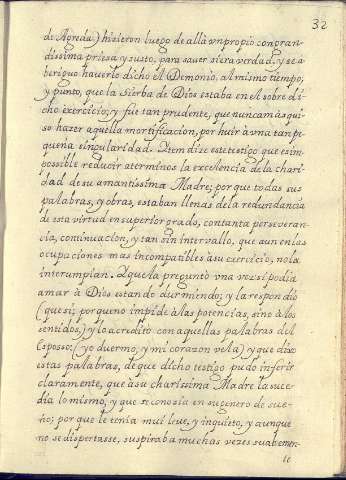 32
de Agreda) hizieron luego de allà vn propio con gran-
dissima priesa y susto, para saver si era verdad, y se a-
beriguo haverlo dicho el Demonio, al mismo tiempo,
y punto, que la Sierba de Dios estaba en el sobre di-
cho exercicio; y fue tan prudente, que nunca mas qui-
so hazer aquella mortificacion, por huir à vna tan pe-
queña singularidad. Item dize este testigo que es im-
possible reducir a terminos la excelencia de la chari-
dad de su amantissima Madre; por que todas sus
palabras, y obras, estaban llenas de la redundancia
de esta virtud en superior grado, con tanta perseveran-
cia, continuacion, y tan sin intervallo, que aun en las
ocupaciones mas incompatibles a su exercicio, no la
interrumpian. Y que la preguntò vna vez si podia
amar à Dios estando durmiendo; y la respondiò
(que si, por que no impide à las potencias, sino à los
sentidos,) y lo acreditò con aquellas palabras del
Esposo: (yo duermo, y mi corazon vela) y que dixo
estas palabras, de que dicho testigo pudo inferir
claramente, que a su charissima Madre la suce-
dia lo mismo, y que se conozia en su genero de sue-
ño; por que le tenia mui leve, y inquieto, y aunque
no se dispertasse, suspiraba muchas vezes suabemen-
te